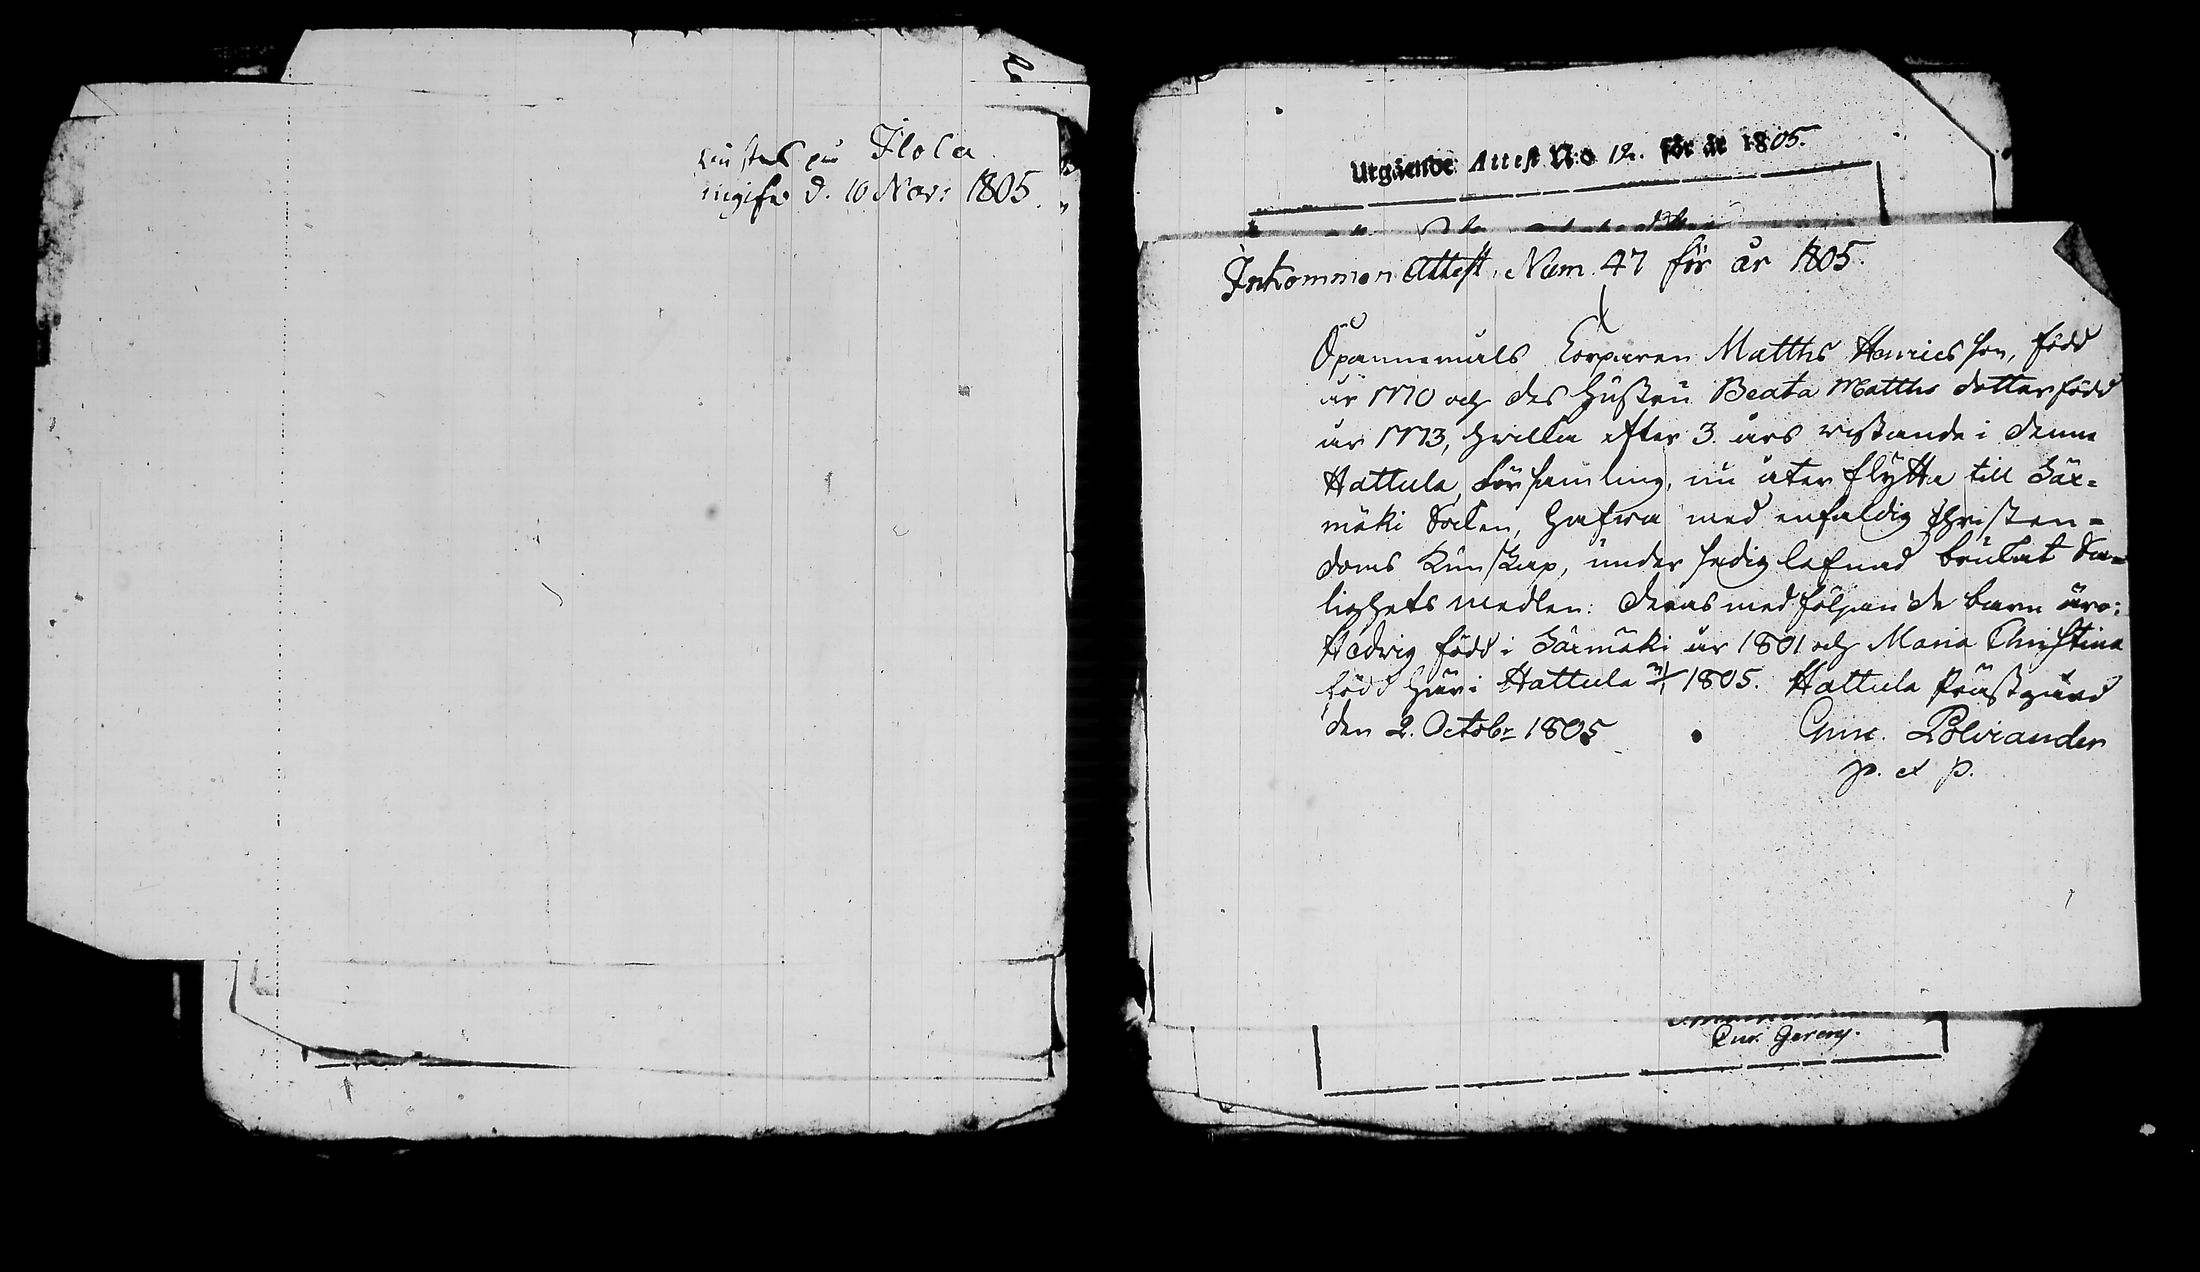 på Ilola
d. 10 Nov: 1805.
Utgående Attest N:o 12. för år 1805.
Inkommen Attest, Num. 47 för år 1805.
Öfpannemälds Torparen Matths Henricsson, född
år 1770 och des Hustru Beata Matths dotter född
år 1773, hvilka efter 3. års vistande i denna
Hattula Församling, nu åter flytta till Säx=
mäki Sokn, hafva med enfaldig Christen=
doms Kunskap, under sedig lefnad brukat Sa=
lighets medlen: Deras medföljande barn äro:
Hedvig född i Säxmäki år 1801 och Maria Christina
född här i Hattula 1805. Hattula Prästgård
den 2. Octobr 1805
Gust. Polviander
p. et p.